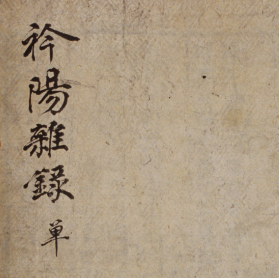 衿陽雜錄 単